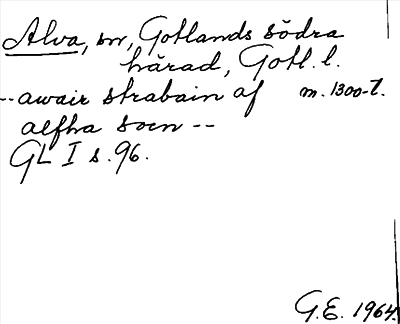 Alva, sn, Gotlands södra
härad, Gotl. l.
--awair strabain af m. 1300-t.
aelfha socn --
GL I s. 96.
G.E. 1964.